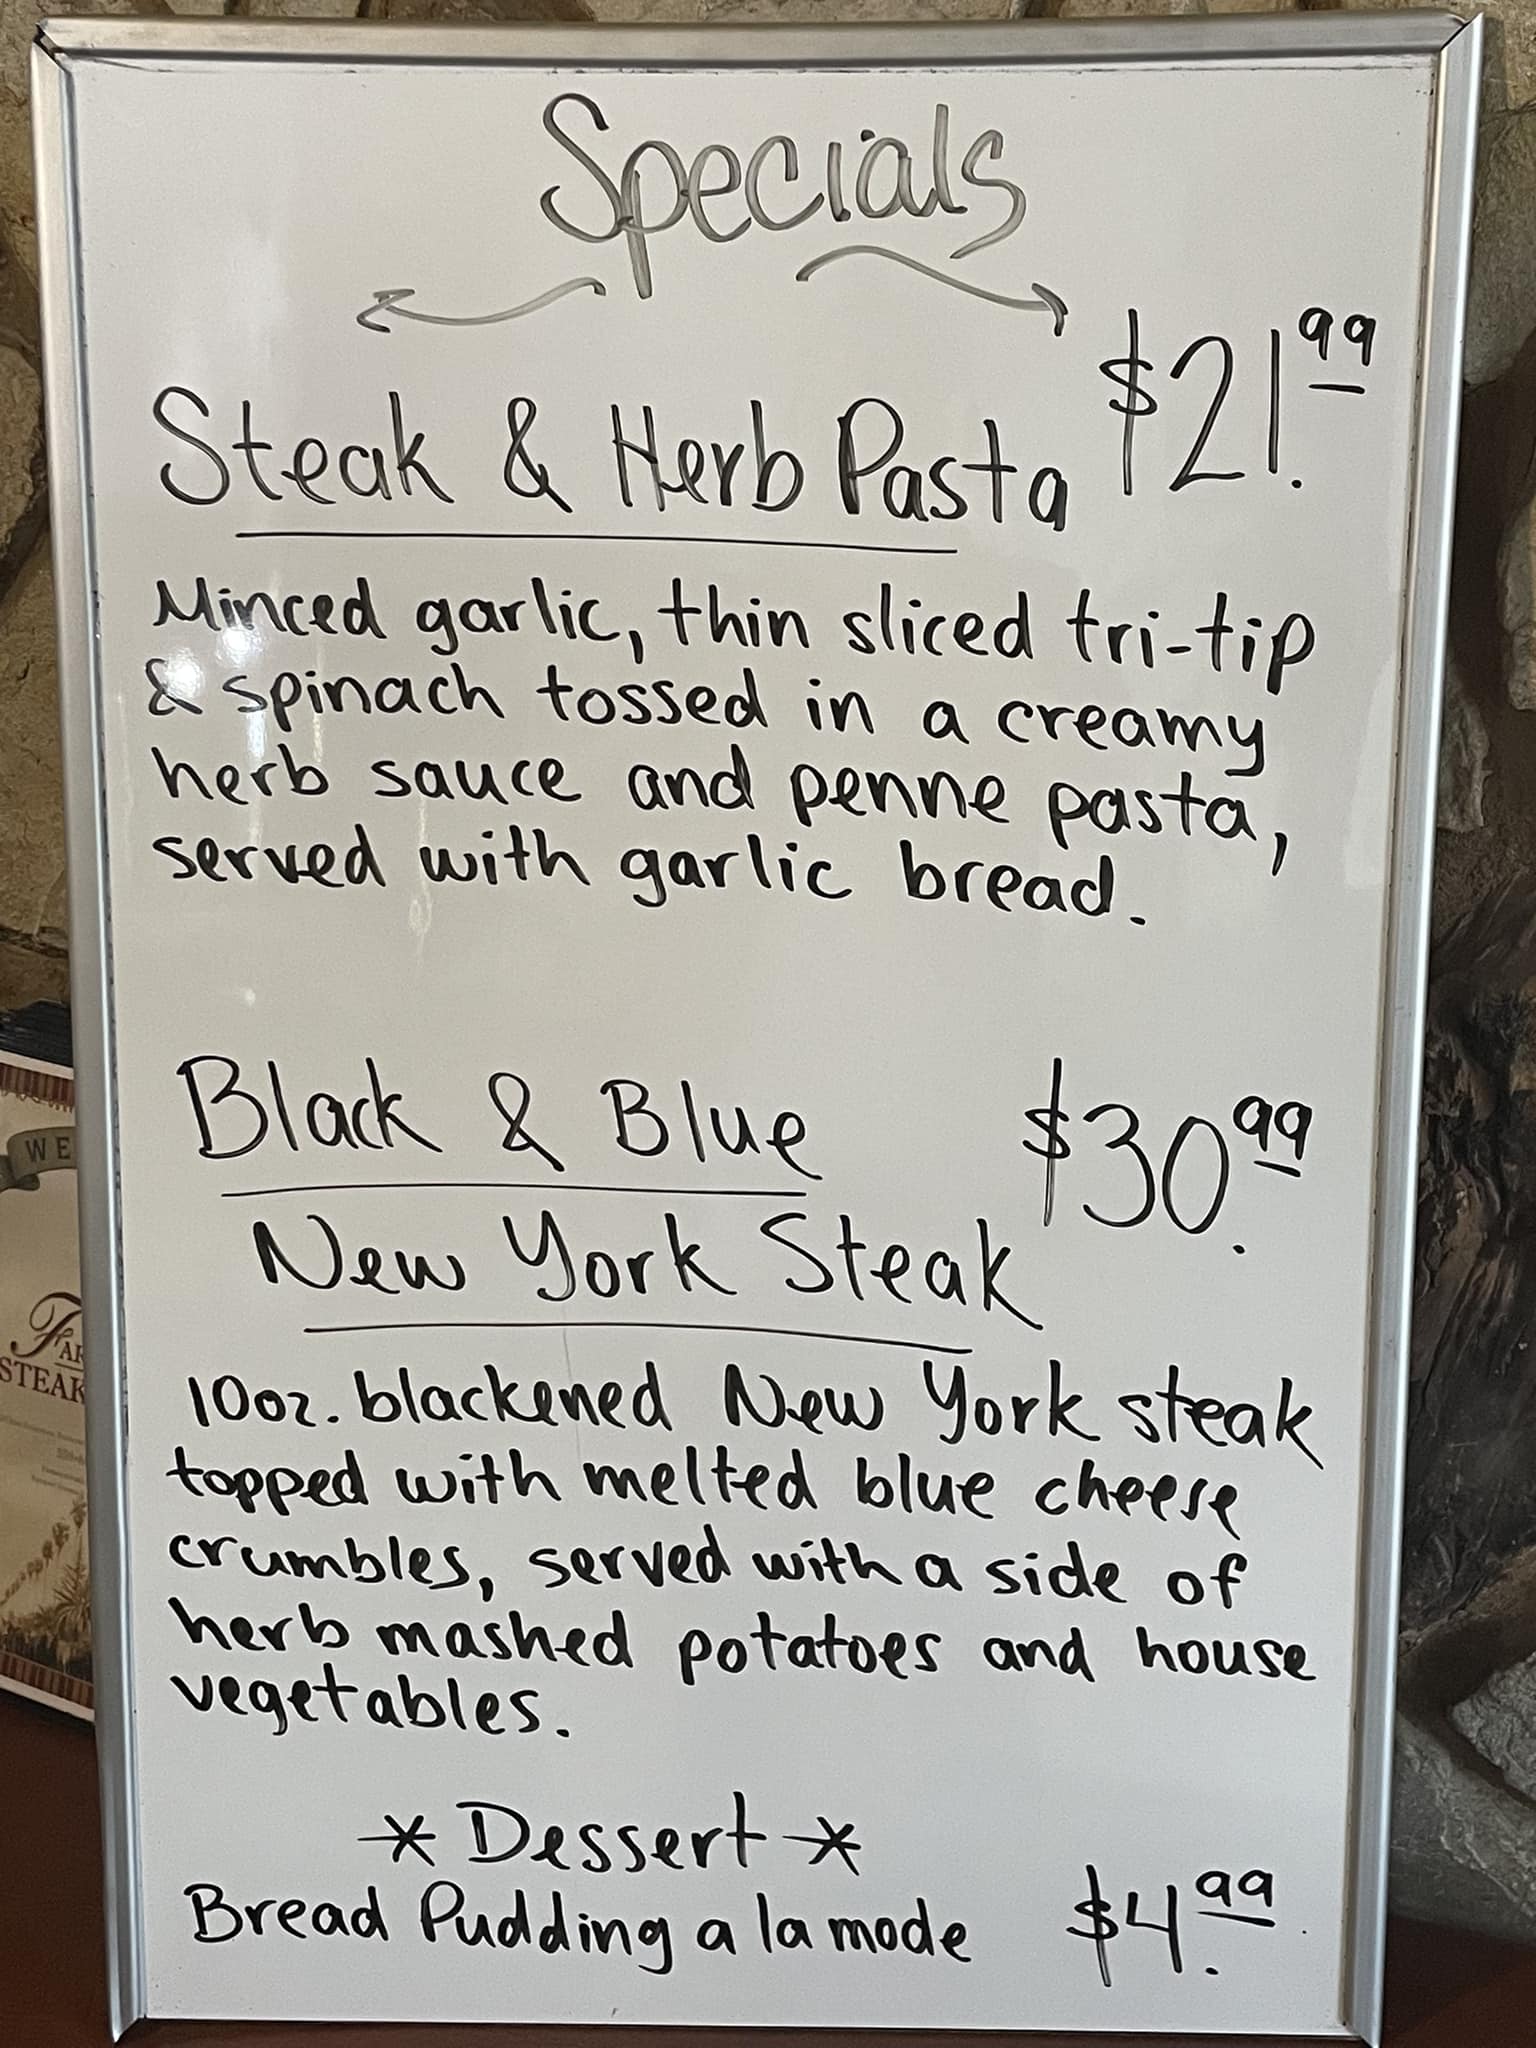 Specials
Steak & Herb Pasta $21.99
Minced garlic, thin sliced tri-tip
& spinach tossed in a creamy
herb sauce and penne pasta,
served with garlic bread.
Black & Blue $30.99
New York Steak
10oz. blackened New York steak
topped with melted blue cheese
crumbles, served with a side of
herb mashed potatoes and house
vegetables.
* Dessert *
Bread Pudding a la mode $4.99
WE
STEAK